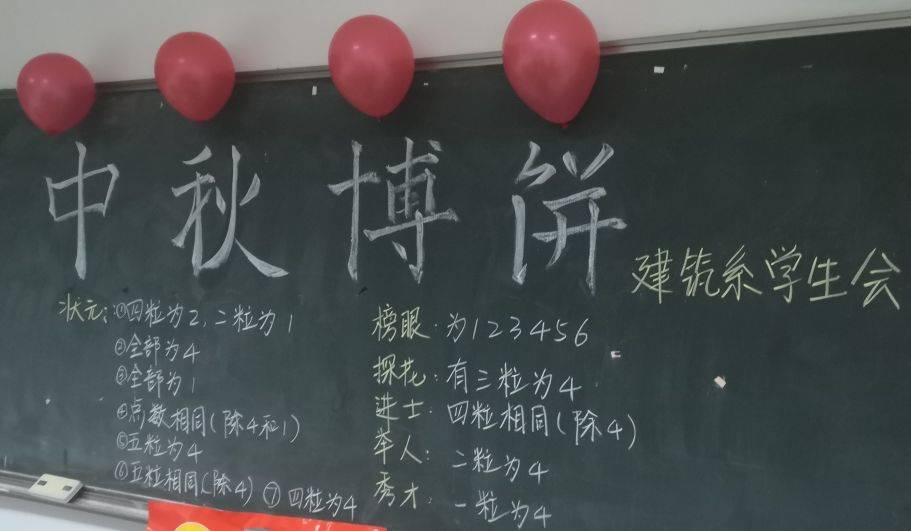 中秋博饼
建筑系学生会
状元:①四粒为2,二粒为1
②全部为4
③全部为1
④点数相同(除4和1)
⑤五粒为4
⑥五粒相同(除4) ⑦四粒为4
榜眼:为123456
探花:有三粒为4
进士:四粒相同(除4)
举人:二粒为4
秀才:一粒为4